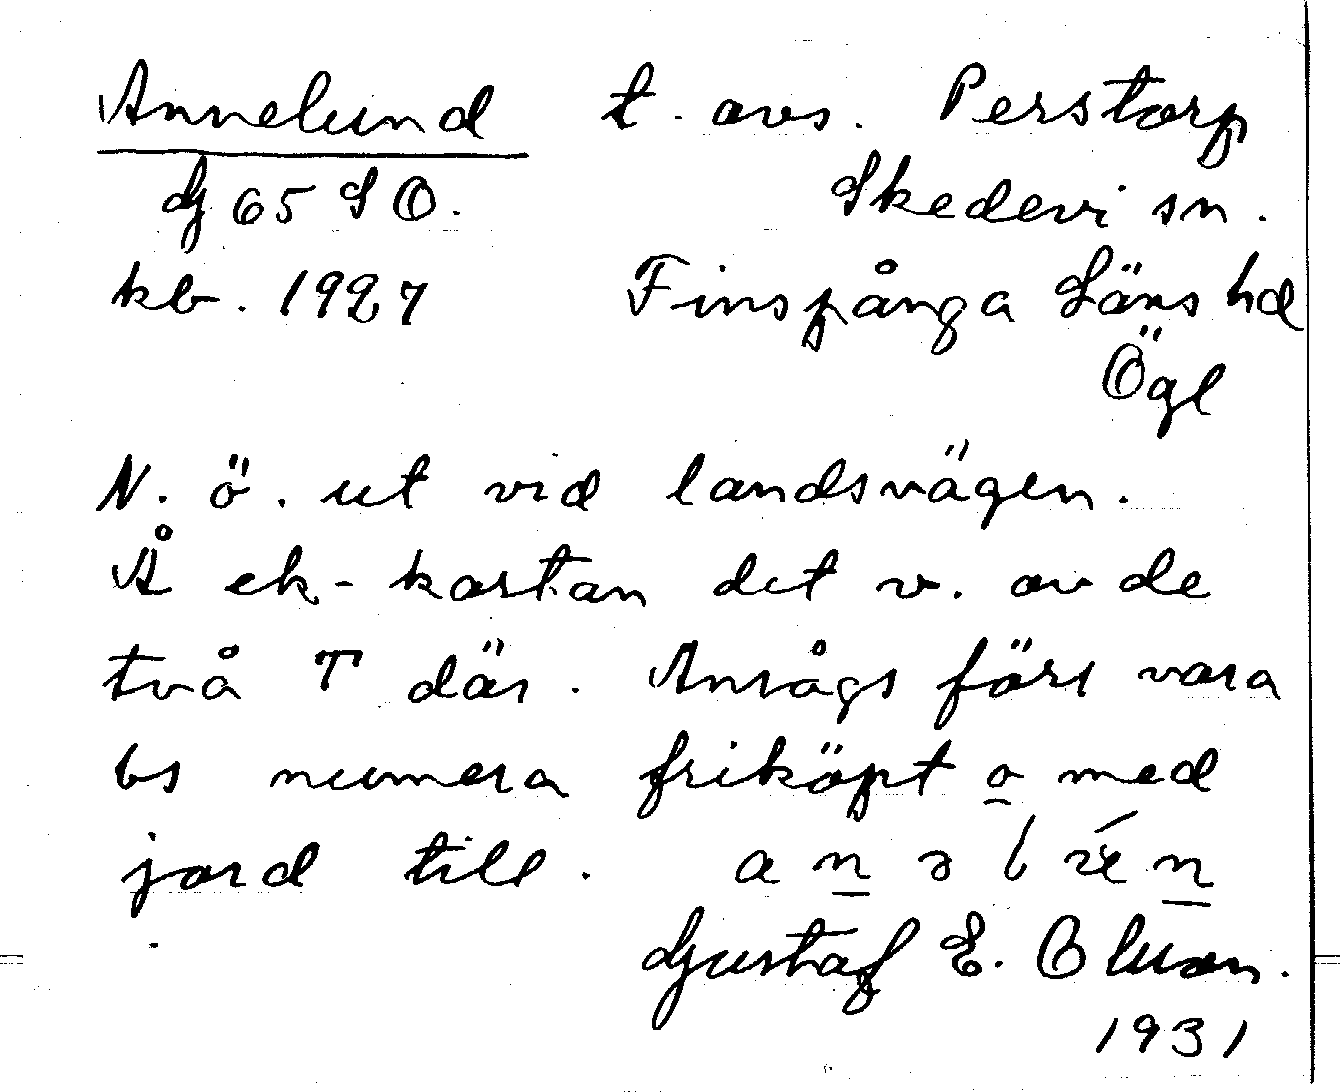 Annelund t. avs. Perstorp
Gj 65 SO. Skedevi sn.
kb. 1927 Finspånga Läns hd
Ögl
N. ö. ut vid landsvägen.
Å ek-kartan det v. av de
två T där. Ansågs förs vara
bs numera friköpt o med
jord till.
Gustaf E. Olsson.
1931